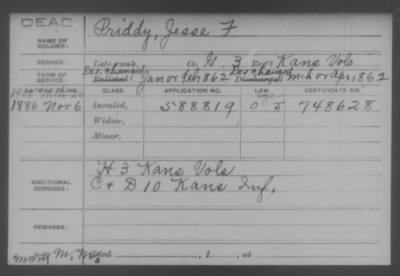 DEAC
NAME OF SOLDIER: Priddy, Jesse F
SERVICE: Late rank, Co. G. 3 Reg't Kans Vols
TERM OF SERVICE: Enlisted Jan or Feb 1862 Discharged Mch or Apr, 1862
DATE OF FILING. CLASS. APPLICATION NO. LAW. CERTIFICATE NO.
1886 Nov 6 Invalid, 588819 748628
Widow,
Minor,
ADDITIONAL SERVICES: H 3 Kans Vols
C & D 10 Kans Inf,
REMARKS: